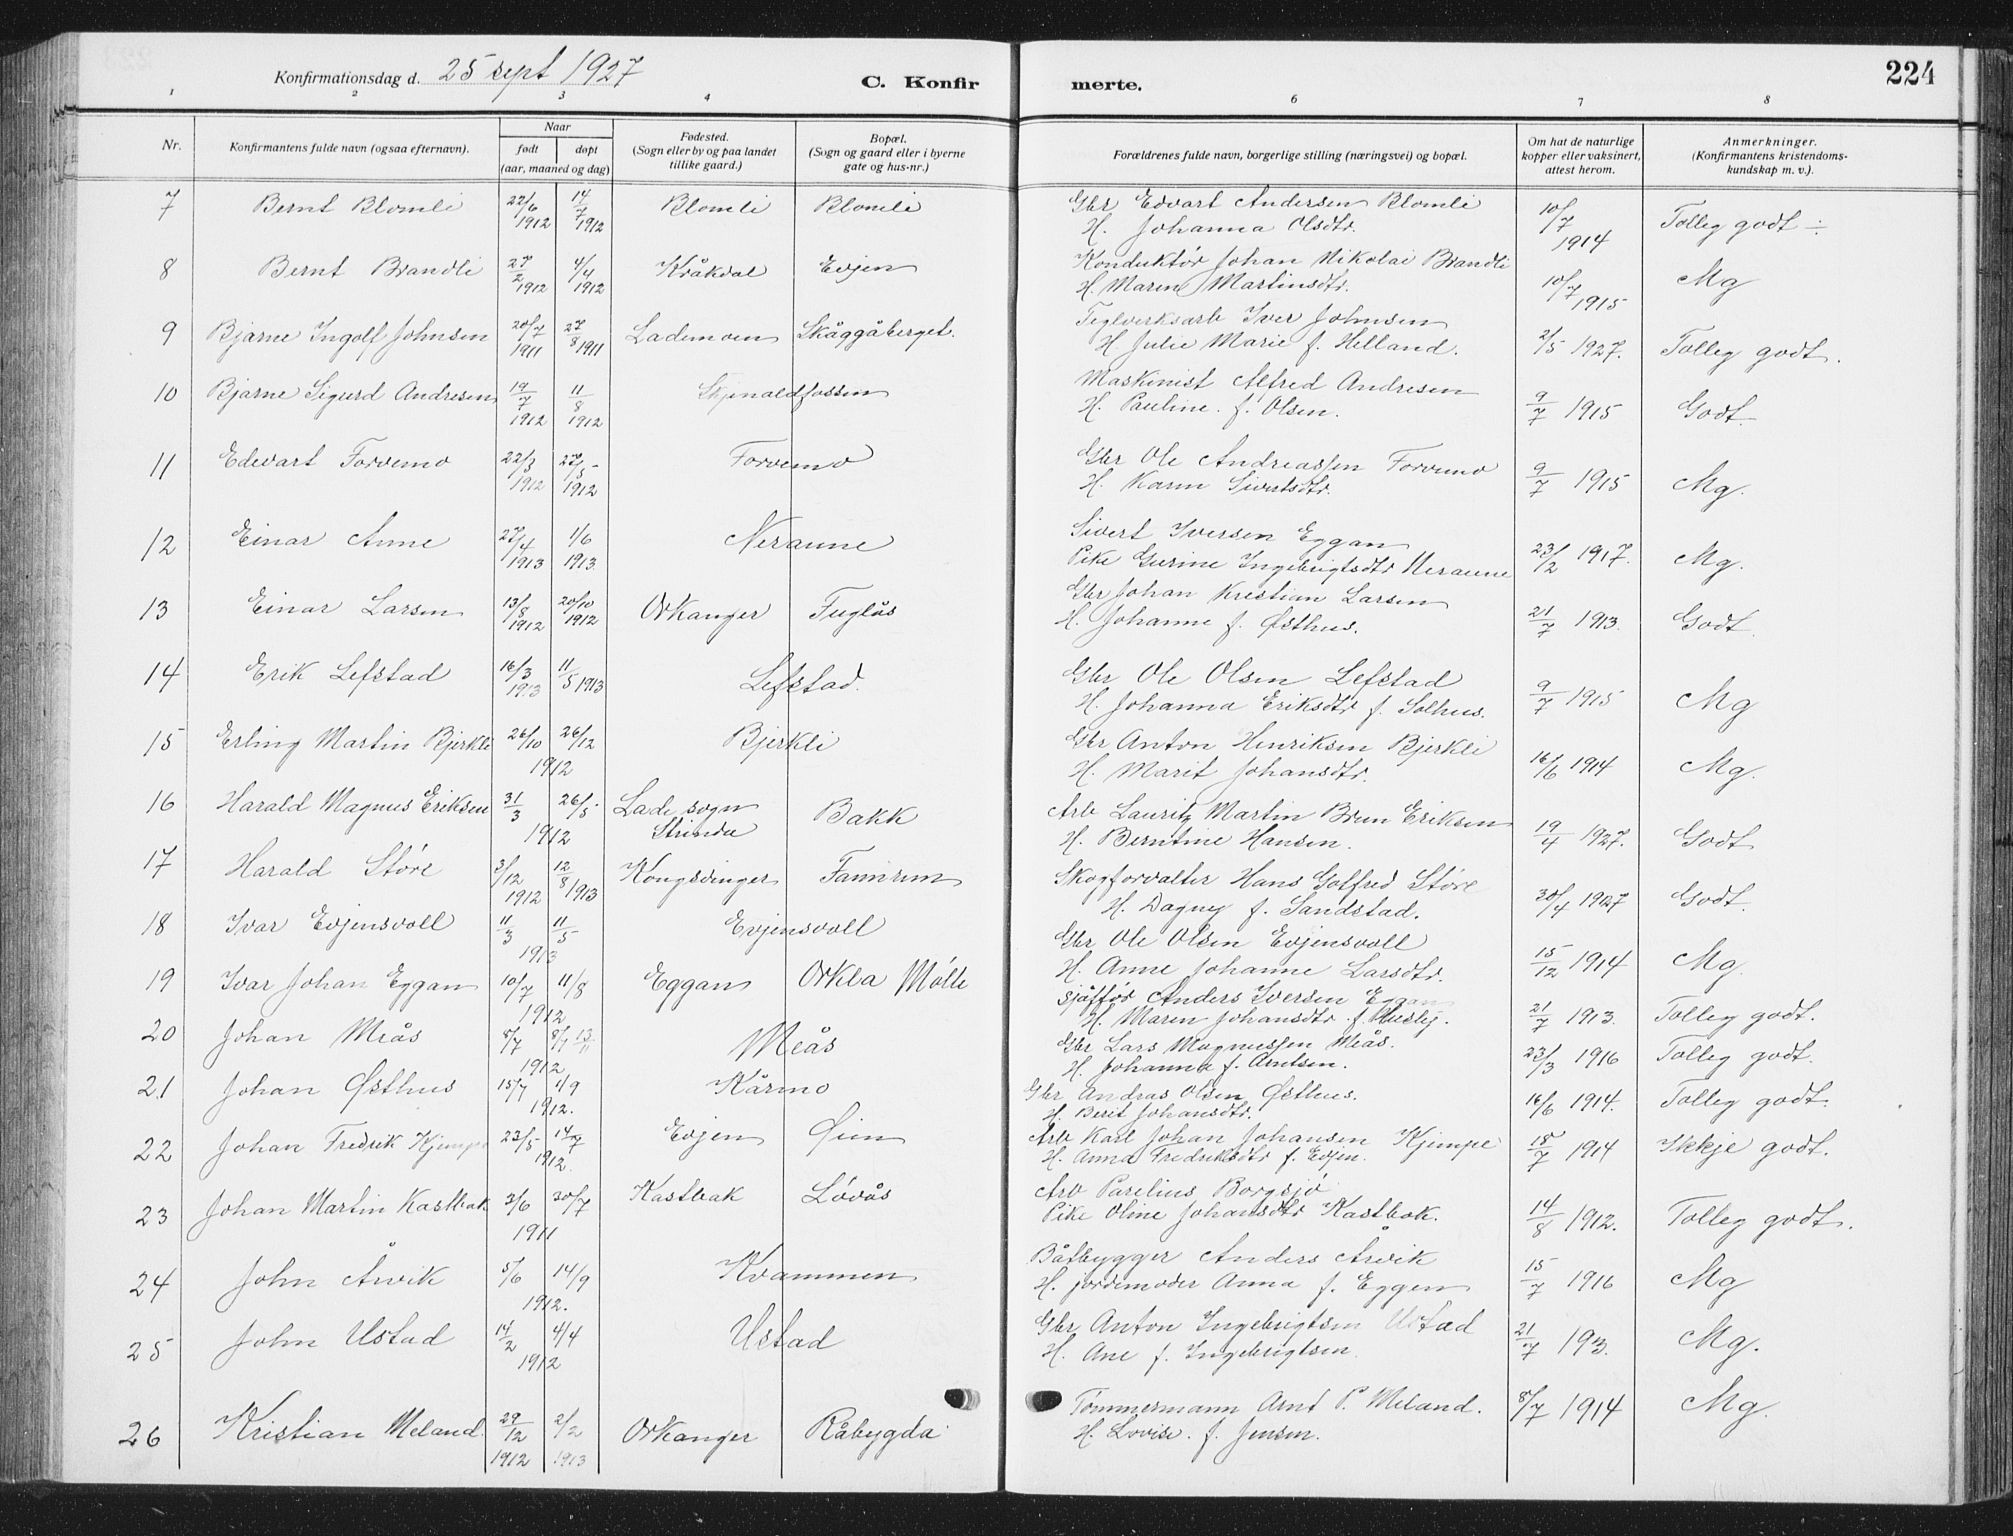 224
Konfirmationsdag d. 25 sept 1927
C. Konfir merte.
1 2 3 4 6 7 8
Nr. Konfirmantens fulde navn (ogsaa efternavn). Naar født døpt (aar, maaned og dag) Fødested. (Sogn eller by og paa landet tillike gaard.) Bopæl. (Sogn og gaard eller i byerne gate og hus-nr.) Forældrenes fulde navn, borgerlige stilling (næringsvei) og bopæl. Om hat de naturlige kopper eller vaksinert, attest herom. Anmerkninger. (Konfirmantens kristendoms- kundskap m. v.).
7 Bernt Blomli 22/6 1912 14/7 1912 Blomli Blomli Gbr Edvart Andersen Blomli 10/7 1914 Tolleg godt ÷
H. Johanna Olsdtr.
8 Bernt Brandli 27/2 1912 4/4 1912 Kråkdal Evjen Konduktør Johan Nikolai Brandli 10/7 1915 Mg
H. Maren Martinsdtr.
9 Bjarne Ingolf Johnsen 20/7 1911 27/8 1911 Lademoen Skåggåberget. Teglverksarb Iver Johnsen 2/5 1927. Tolleg godt.
H Julie Marie f. Helland.
10 Bjarne Sigurd Andresen 19/7 1912 11/8 1912 Skjenaldfossen Maskinist Alfred Andresen 9/7 1915 Godt.
H. Pauline f. Olsen.
11 Edevart Forvemo 22/3 1912 27/5 1912 Forvemo Gbr Ole Andreassen Forvemo 9/7 1915 Mg.
H. Karen Sivertsdtr.
12 Einar Aune 27/4 1913 1/6 1913. Neraune Sivert Iversen Eggan 23/2 1917. Mg.
Pike Gurine Ingebrigtsdtr Neraune
13 Einar Larsen 13/8 1912 20/10 1912 Orkanger Fuglås Gbr Johan Kristian Larsen 21/7 1913. Godt.
H. Johanne f. Østhus.
14 Erik Lefstad 16/3 1913 11/5 1913 Lefstad. Gbr Ole Olsen Lefstad 9/7 1915 Mg
H. Johanna Eriksdtr f. Solhus.
15 Erling Martin Bjerkli 26/10 26/12 1912 Bjerkli Gbr Anton Henriksen Bjerkli 16/6 1914 Mg.
H. Marit Johansdtr.
16 Harald Magnus Eriksen 31/3 26/5 1912 Lade sogn Strinda Bakk Arb Lauritz Martin Brun Eriksen 19/4 1927. Godt
H. Berntine Hansen.
17 Harald Støre 3/12 1912 12/8 1913 Kongsvinger Fannrem Skogforvalter Hans Golfred Støre 30/4 1927 Godt.
H. Dagny f. Sandstad.
18 Ivar Evjensvoll 11/3 11/5 1913 Evjensvoll Gbr Ole Olsen Evjensvoll 15/12 1914 Mg.
H. Anne Johanne Larsdtr.
19 Ivar Johan Eggan 10/7 11/8 1912 Eggan Orkla Mølle sjåffør Anders Iversen Eggan 21/7 1913. Tolleg godt.
H. Maren Johansdtr f. Husby.
20 Johan Meås 8/7 13/11 1912 Meås Gbr Lars Magnussen Meås. 23/3 1916 Tolleg godt.
H. Johanna f. Arntsen.
21 Johan Østhus 15/7 1/9 1912. Kårmo Gbr Andras Olsen Østhus. 16/6 1914. Tolleg godt.
H. Berit Johansdtr.
22 Johan Fredrik Kjempe 23/5 14/7 1912. Evjen Øien Arb Karl Johan Johansen Kjempe 18/7 1914 Ikkje godt.
H. Anna Fredriksdtr f. Evjen.
23 Johan Martin Kastbak 3/6 30/7 1911 Kastbak Løvås Arb Parelius Borgsjø 14/8 1912. Tolleg godt.
Pike Oline Johansdtr Kastbak.
24 John Årvik 5/6 14/9 1912. Kvammen Båtbygger Anders Årvik 15/7 1916 Mg
H. jordemoder Anna f. Eggen
25 John Ustad 14/2 4/4 1912 Ustad Gbr Anton Ingebrigtsen Ustad 21/7 193. Mg.
H. Ane f. Ingebrigtsen.
26 Kristian Meland. 29/12 1912 2/2 1913 Orkanger Råbygda Tømmermann Arnt P. Meland. 8/7 1914 Mg.
H. Lovise f. Jensen.